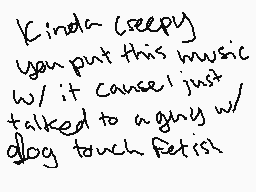 Kinda creepy
you put this music
w/ it cause I just
talked to a guy w/
dog touch fetish